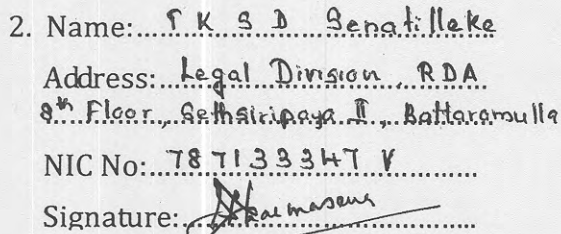 2. Name: T K S D Senatilleke
Address: Legal Division, RDA
8th Floor, Sethsiripaya II, Battaramulla
NIC No: 787133347 V
Signature: